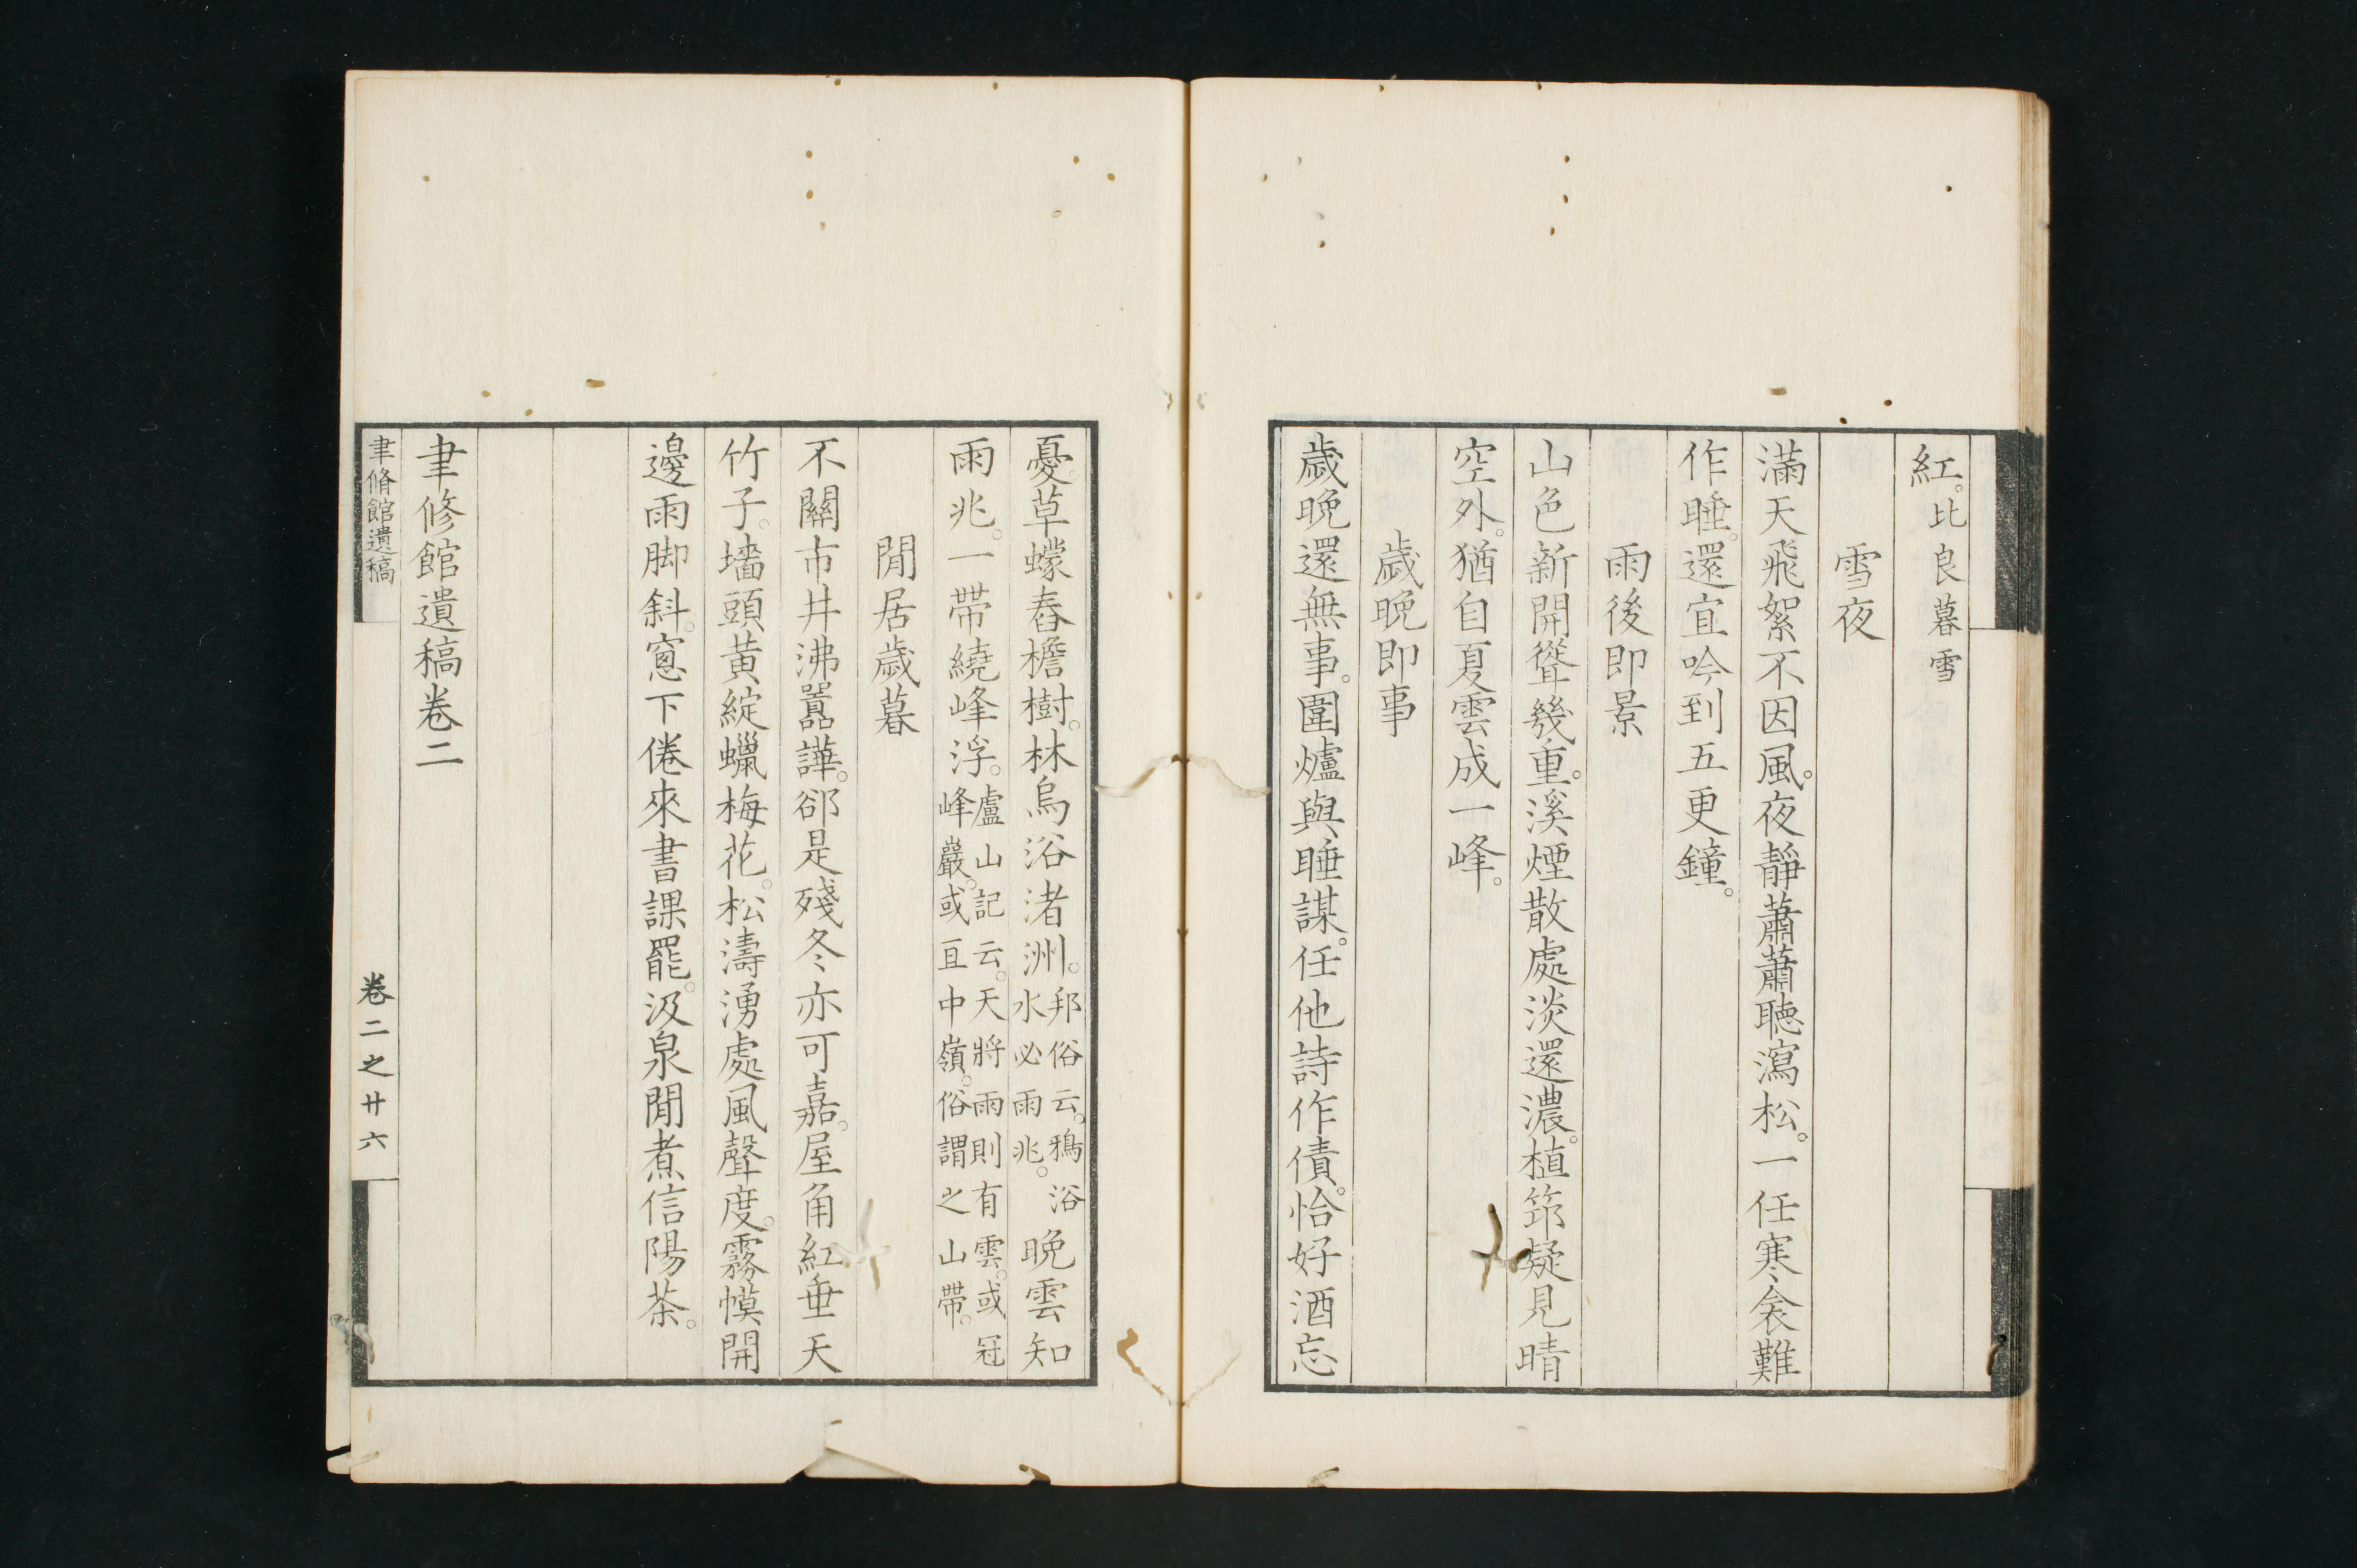 紅。比良暮雪
雪夜
滿天飛絮不因風。夜靜蕭蕭聽瀉松。一任寒衾難
作睡。還宜吟到五更鐘。
雨後即景
山色新開聳幾重。溪煙散處淡還濃。植筇疑見晴
空外。猶自夏雲成一峰。
歲晚即事
歲晚還無事。圍爐與睡謀。任他詩作債。恰好酒忘
憂。草蠓舂檐樹。林烏浴渚洲。邦俗云。鴉浴水必雨兆。晚雲知
雨兆。一帶繞峰浮。廬山記云。天將雨則有雲。或冠峰巖。或亘中嶺。俗謂之山帶。
閒居歲暮
不關市井沸囂譁。郤是殘冬亦可嘉。屋角紅垂天
竹子。墻頭黃綻蠟梅花。松濤湧處風聲度。霧幙開
邊雨脚斜。窓下倦來書課罷。汲泉閒煮信陽茶。
聿修館遺稿卷二
聿脩館遺稿
卷二之廿六